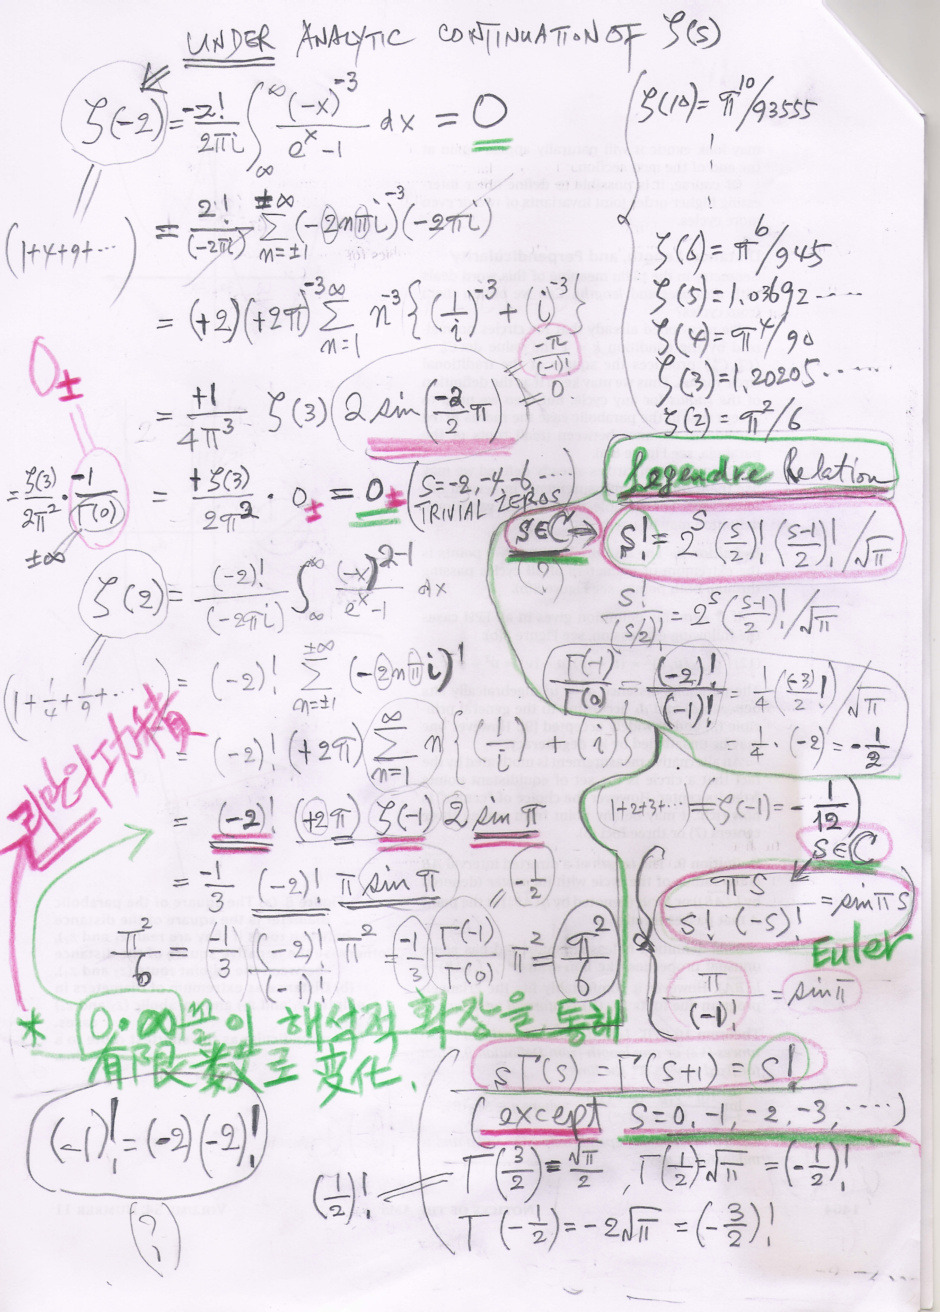 UNDER ANALYTIC CONTINUATION OF ζ(s)
ζ(-2) = -2!/2πi ∫_∞^∞ (-x)^-3/(e^x -1) dx = 0
(1+4+9+···)
= 2!/(-2πi) Σ_{n=±1}^{±∞} (-2nπi)^-3 (-2πi)
= (+2)(+2π)^-3 Σ_{n=1}^∞ n^-3 {(1/i)^-3 + i^-3}
0±
-π/(-1)! = 0
= +1/4π³ ζ(3) (2 sin(-2/2)π)
= ζ(3)/2π² · -1/Γ(0) = +ζ(3)/2π² · 0± = 0± (S=-2, -4 -6, ···
TRIVIAL ZEROS)
±∞
ζ(2) = (-2)!/(-2πi) ∫_∞^∞ (-x)^2-1/(e^x -1) dx
(1+1/4+1/9+···) = (-2)! Σ_{n=±1}^{±∞} (-2nπi)^1
= (-2)! (+2π) Σ_{n=1}^∞ n{(1/i) + (i)}
리만의 功績
= (-2)! (+2π) ζ(-1) 2 sin π
= -1/3 (-2)! π sin π
-1/2
π²/6 -1/3 (-2)!/(-1)! π² = -1/3 Γ(-1)/Γ(0) π² = π²/6
* 0·∞ 이 해석적 확장을 통해
有限數로 變化.
(-1)! = (-2)(-2)!
?
ζ(10) = π^10/93555
ζ(6) = π^6/945
ζ(5) = 1.03692·····
ζ(4) = π^4/90
ζ(3) = 1.20205·····
ζ(2) = π²/6
Legendre Relation
S∈ℂ → S! = 2^S (S/2)! (S-1/2)! /√π
?
S!/(S/2)! = 2^S (S-1/2)! /√π
Γ(-1)/Γ(0) = (-2)!/(-1)! = 1/4 (-3/2)! /√π
= 1/4 · (-2) = -1/2
1+2+3+··· = ζ(-1) = -1/12
S∈ℂ
πS/S! (-S)! = sin πS
Euler
π/(-1)! = sin π
SΓ(S) = Γ(S+1) = S!
(except S=0, -1, -2, -3, ·····)
(1/2)! ⇐ Γ(3/2) = √π/2 , Γ(1/2) = √π = (-1/2)!
Γ(-1/2) = -2√π = (-3/2)!